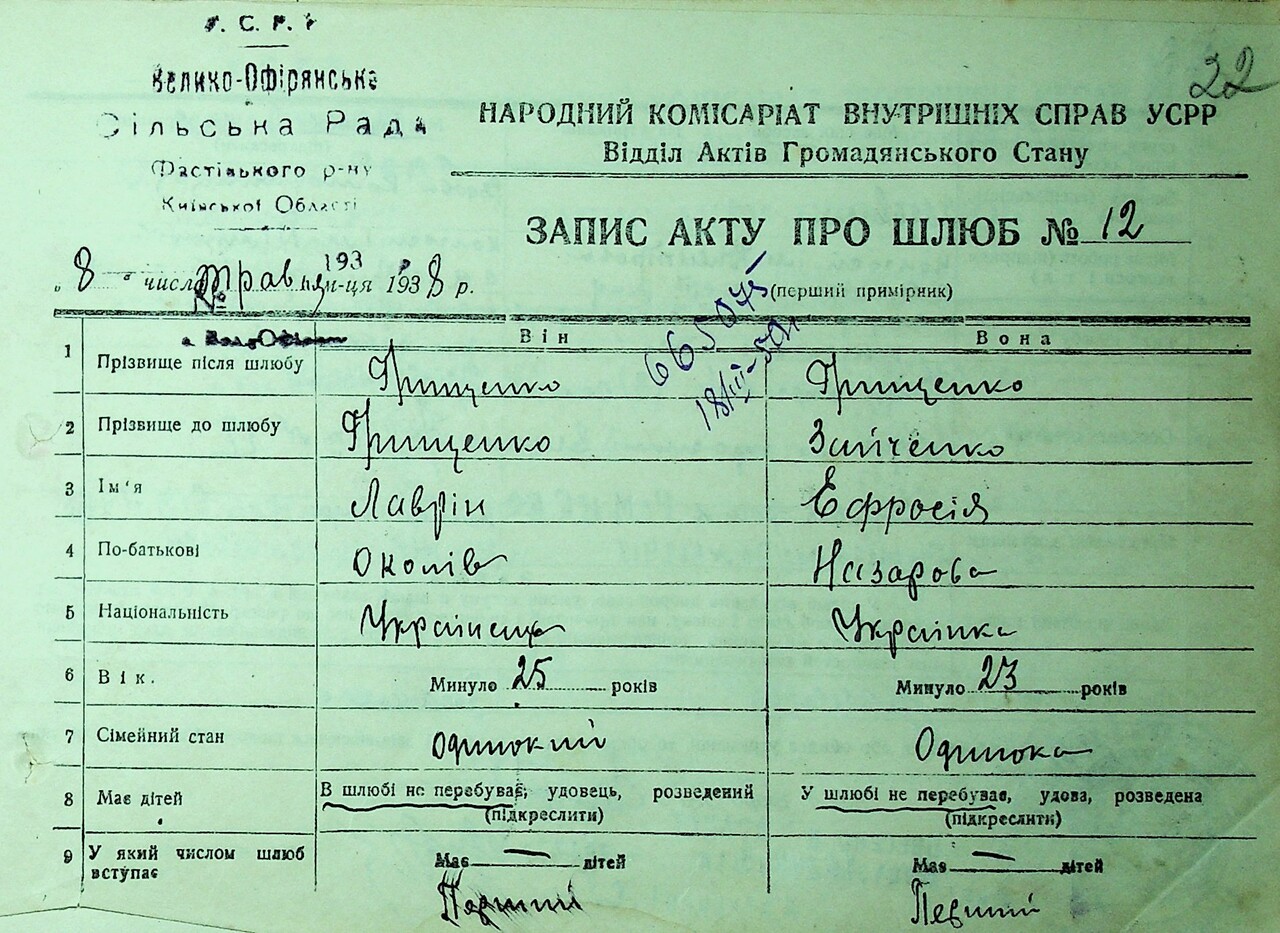 У. С. Р. Р
22
Велико-Офірянська
Сільська Рада
Фастівського р-ну
Київської Області
НАРОДНИЙ КОМІСАРІАТ ВНУТРІШНІХ СПРАВ УСРР
Відділ Актів Громадянського Стану
ЗАПИС АКТУ ПРО ШЛЮБ № 12
(перший примірник)
193
„8" числ травня м-ця 1938 р.
№
665075
Він Вона
1 Прізвище після шлюбу Грищенко Грищенко
2 Прізвище до шлюбу Грищенко Зайченко
3 Ім'я Лаврін Ефросія
4 По-батькові Назарова
5 Національність Українець Українка
6 Вік. Минуло 25 років Минуло 23 років
7 Сімейний стан одинокий Одинока
8 Має дітей В шлюбі не перебуває; удовець, розведений У шлюбі не перебуває, удова, розведена
(підкреслити) (підкреслити)
9 У який числом шлюб вступає Має — дітей Має — дітей
Перший Перший